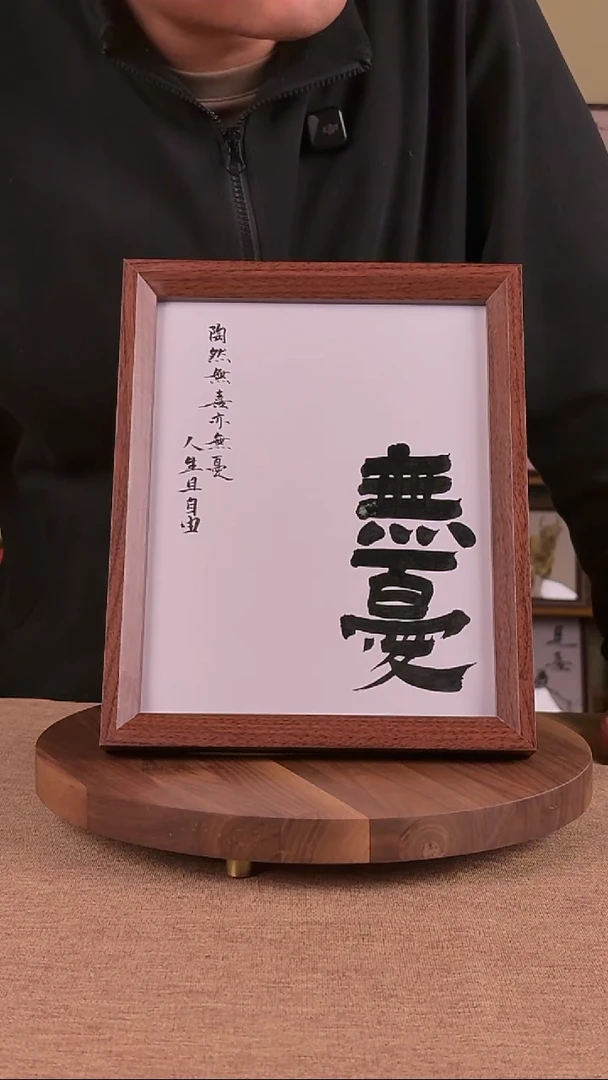 無憂
陶然無喜亦無憂
人生且自由